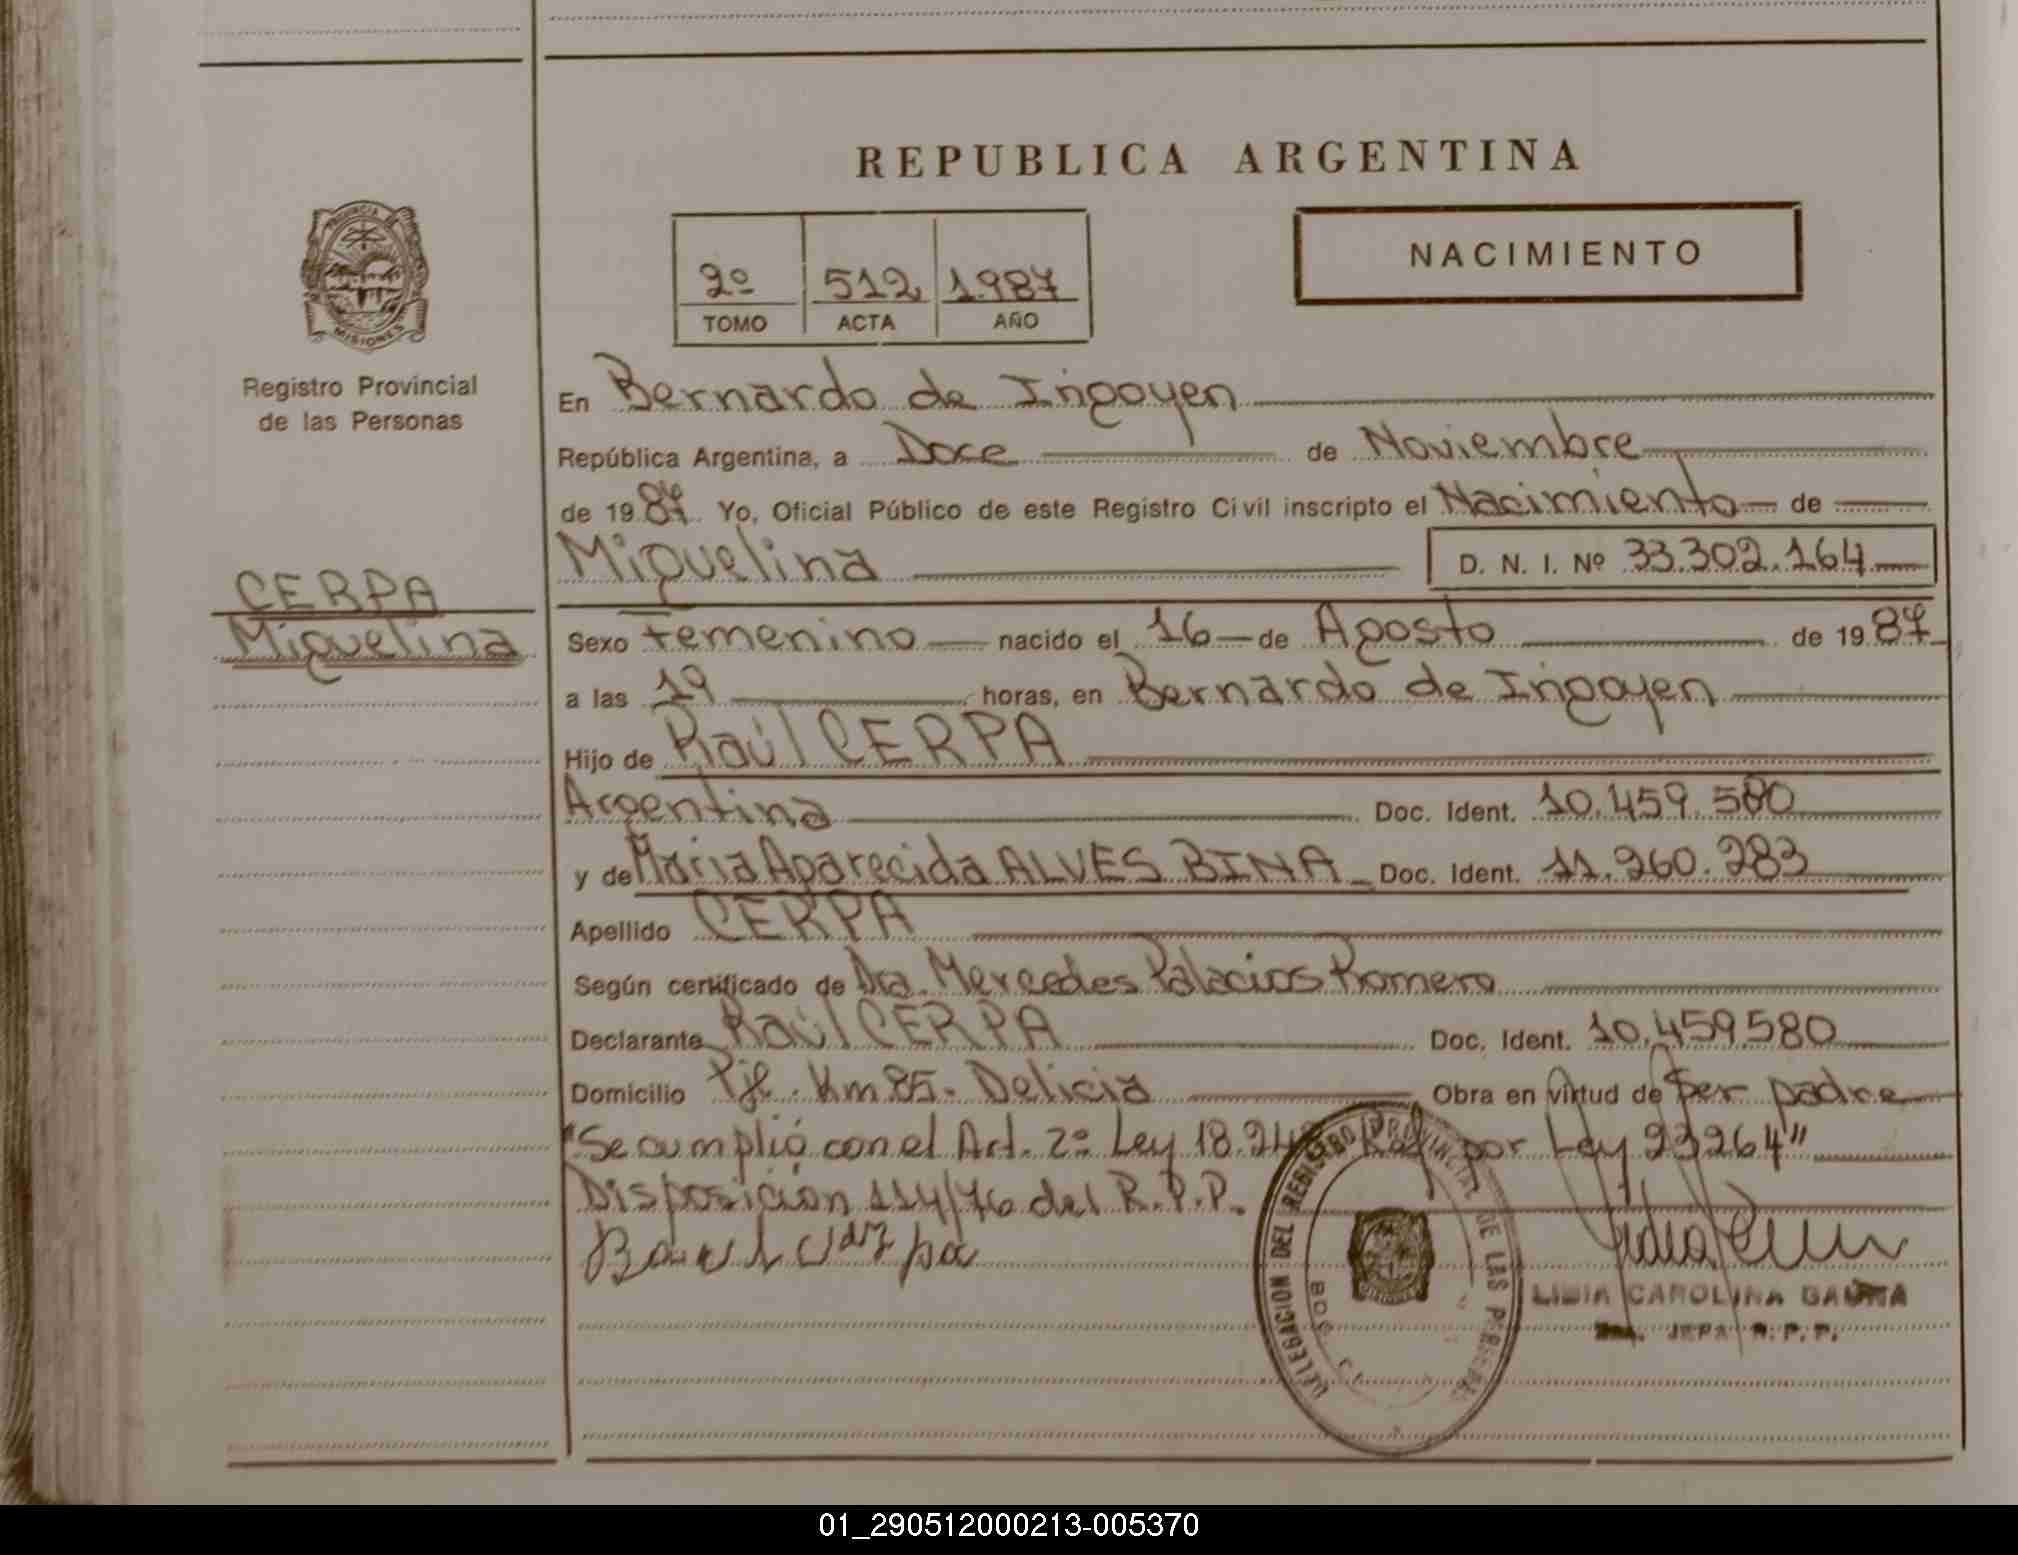 REPUBLICA ARGENTINA
NACIMIENTO
2º 512 1987
TOMO ACTA AÑO
PROVINCIA DE
MISIONES
Registro Provincial
de las Personas
CERPA
Miguelina
En Bernardo de Irigoyen
República Argentina, a Doce de Noviembre
de 1987. Yo, Oficial Público de este Registro Civil inscripto el Nacimiento de
Miguelina D. N. I. Nº 33.302.164
Sexo Femenino nacido el 16 de Agosto de 1987
a las 19 horas, en Bernardo de Irigoyen
Hijo de Raúl CERPA
Argentina Doc. Ident. 10.459.580
y de Maria Aparecida ALVES BINA Doc. Ident. 11.260.283
Apellido CERPA
Según certificado de Dra. Mercedes Palacios Romero
Declarante Raúl CERPA Doc. Ident. 10.459.580
Domicilio Pje. Km 85 - Delicia Obra en virtud de Ser padre
"Se cumplió con el Art. 2º Ley 18.248 Ref por Ley 23264"
Disposición 114/76 del R.P.P.
DELEGACION DEL REGISTRO PROVINCIAL DE LAS PERSONAS
LIDIA CAROLINA GAUNA
JEFA R.P.P.
01_290512000213-005370